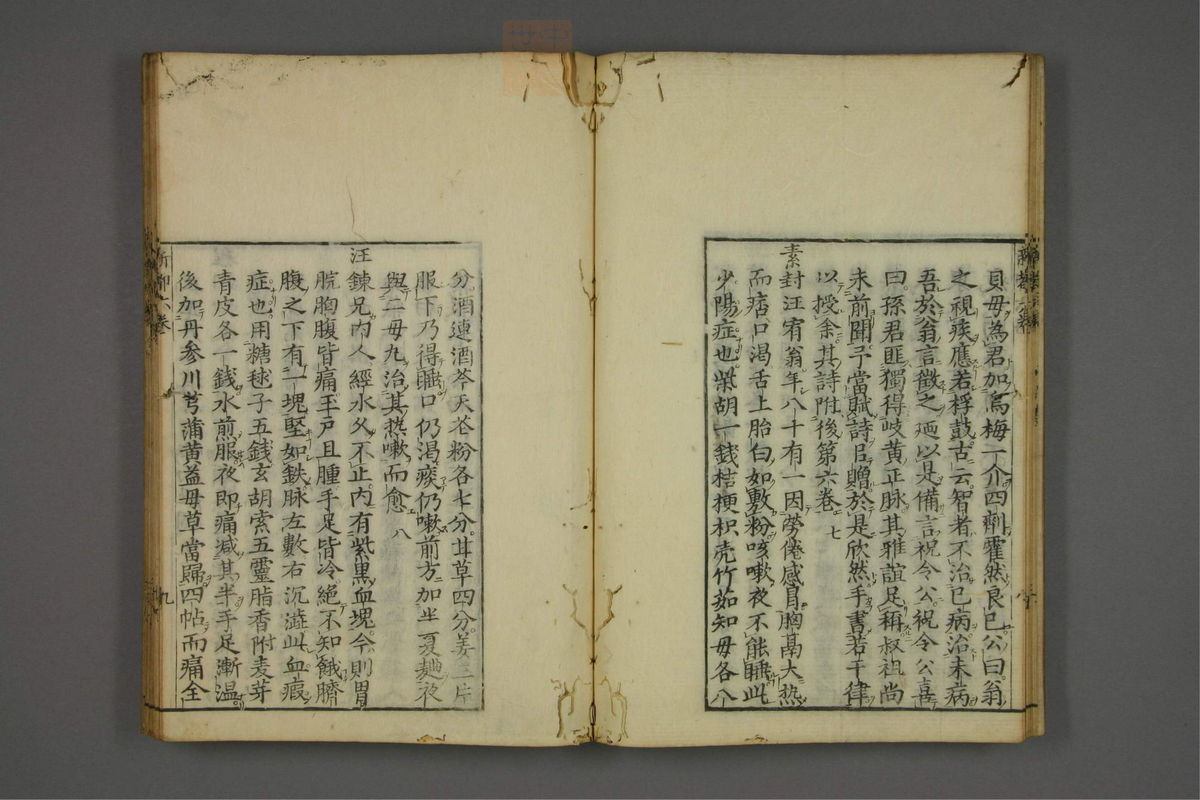 貝母為君加烏梅一介四劑霍然良已公曰翁
之視疾應若桴鼓古云智者不治已病治未病
吾於翁言徵之廼以是備言祝令公祝令公喜
曰孫君匪獨得岐黃正脉其雅誼足稱叔祖尚
未前聞予當賦詩㠯贈於是欣然手書若干律
以授余其詩附後第六卷 七
素封汪宥翁年八十有一因勞倦感冒胸鬲大热
而痞口渴舌上胎白如敷粉咳嗽夜不能睡此
少陽症也柴胡一錢桔梗枳壳竹茹知母各八
分酒連酒芩天花粉各七分甘草四分姜三片
服下乃得睡口仍渴痰仍嗽前方加半夏麯夜
與二母丸治其热嗽而愈 八
汪鍊兄内人經水久不止内有紫黑血塊今則胃
脘胸腹皆痛玉戸且腫手足皆冷絶不知餓臍
腹之下有一塊堅如鉄脉左數右沉澁此血瘕
症也用糖毬子五錢玄胡索五靈脂香附麦芽
青皮各一錢水煎服夜即痛減其半手足漸温
後加丹參川芎蒲黄益母草當歸四帖而痛全
九